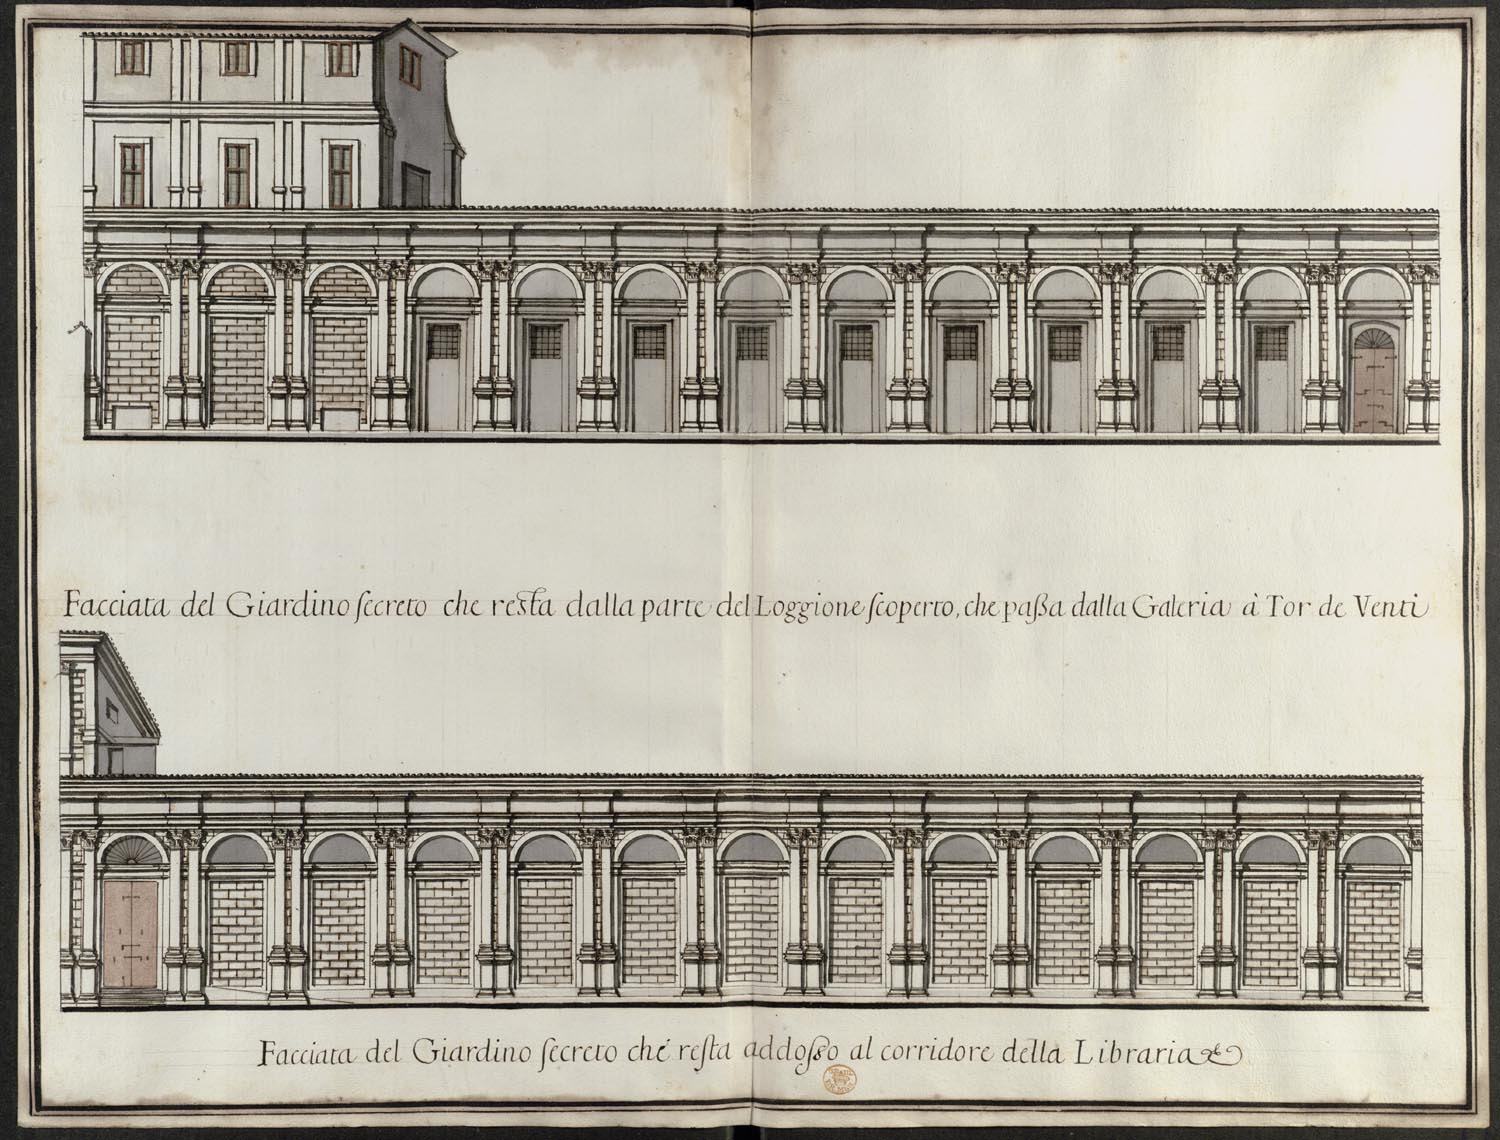 Facciata del Giardino secreto che resta dalla parte del Loggione scoperto, che paßa dalla Galeria à Tor de Venti
Facciata del Giardino secreto che resta addosso al corridore della Libraria